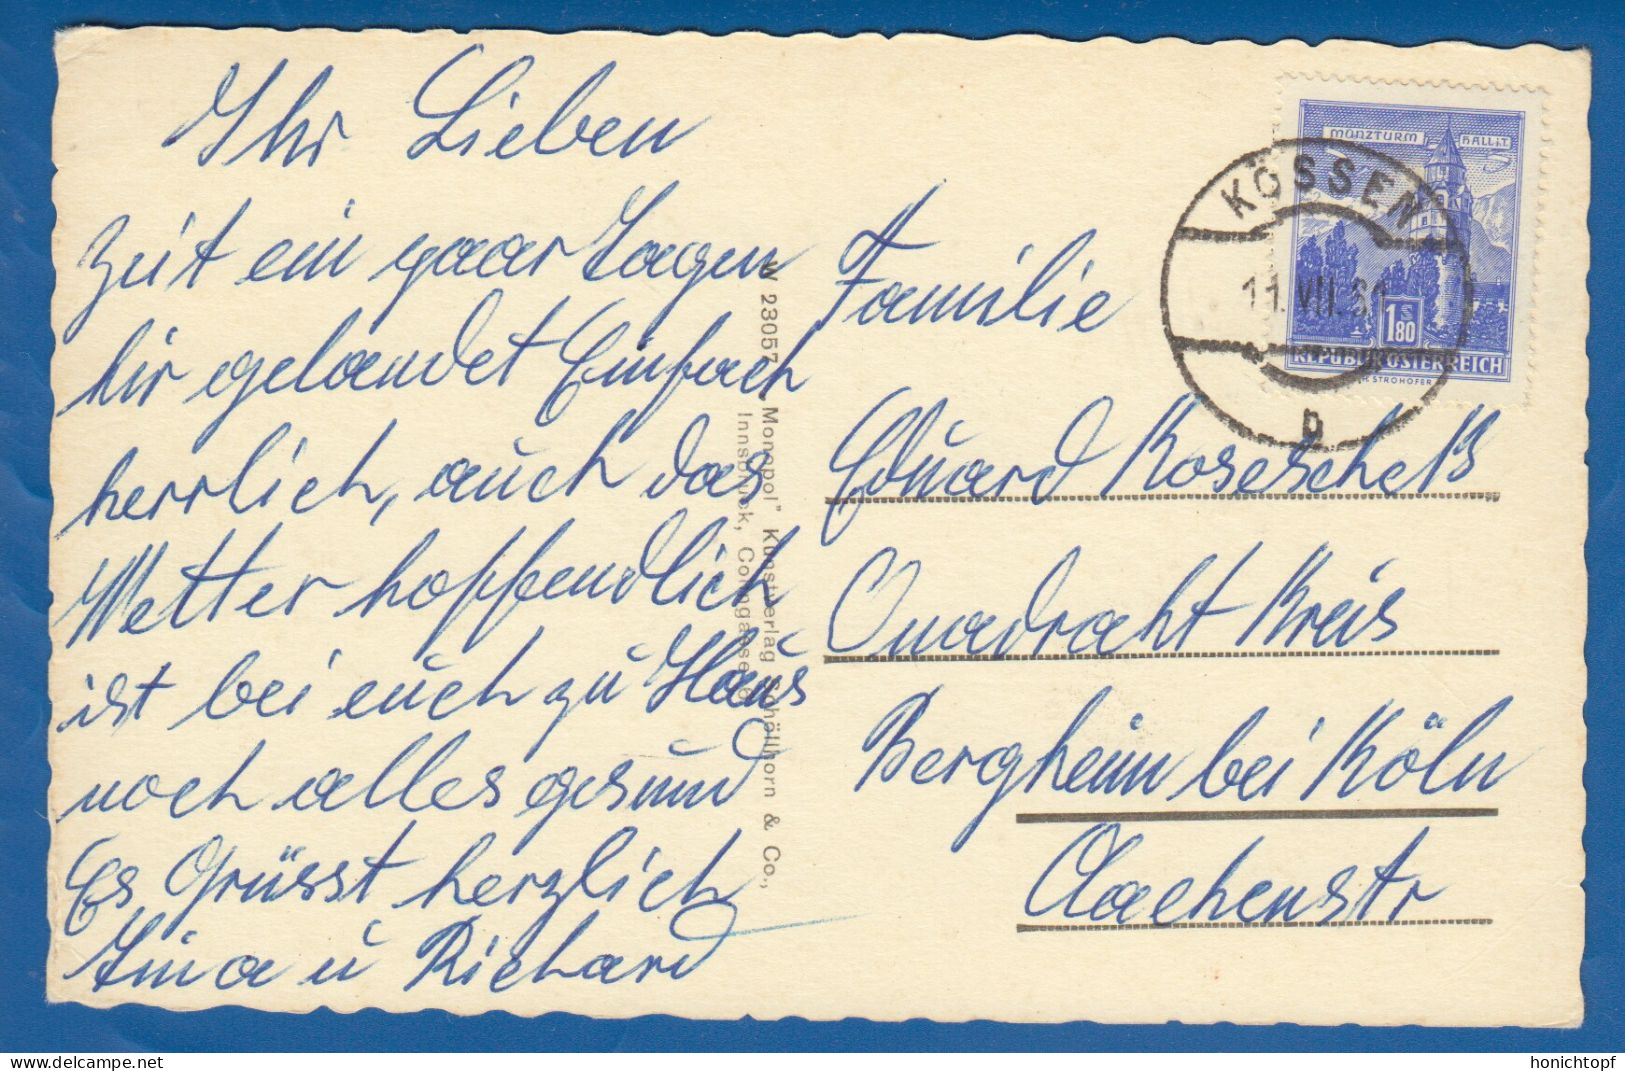 Ihr Lieben
Zeit ein paar Tagen
hir gelandet Einfach
herrlich, auch das
Wetter hoffendlich
ist bei euch zu Haus
noch alles gesund
Es Grüsst herzlich
u Richard
W 23057 „Monopol" Kunstverlag Schöllhorn & Co.,
Innsbruck, Colingasse
Familie
Eduard
Quadraht Kreis
Bergheim bei Köln
Aachenstr
MÜNZTURM HALL i.T.
1.80
S
REPUBLIK ÖSTERREICH
H. STROHOFER
KÖSSEN
11.VII.61
b
delcampe.net
honichtopf